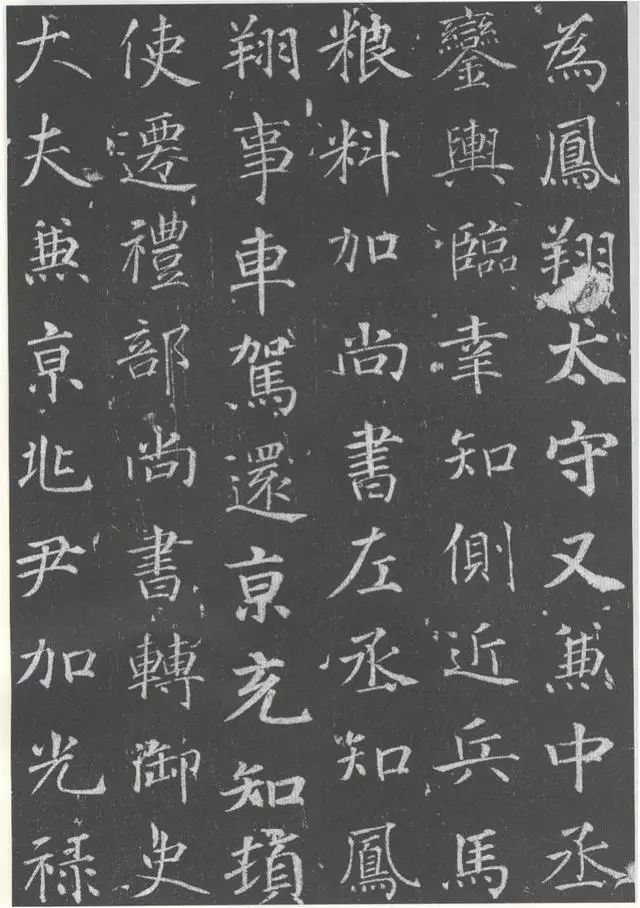 為鳳翔太守又兼中丞
鑾輿臨幸知側近兵馬
粮料加尚書左丞知鳳
翔事車駕還京充知頓
使遷禮部尚書轉御史
大夫兼京兆尹加光禄